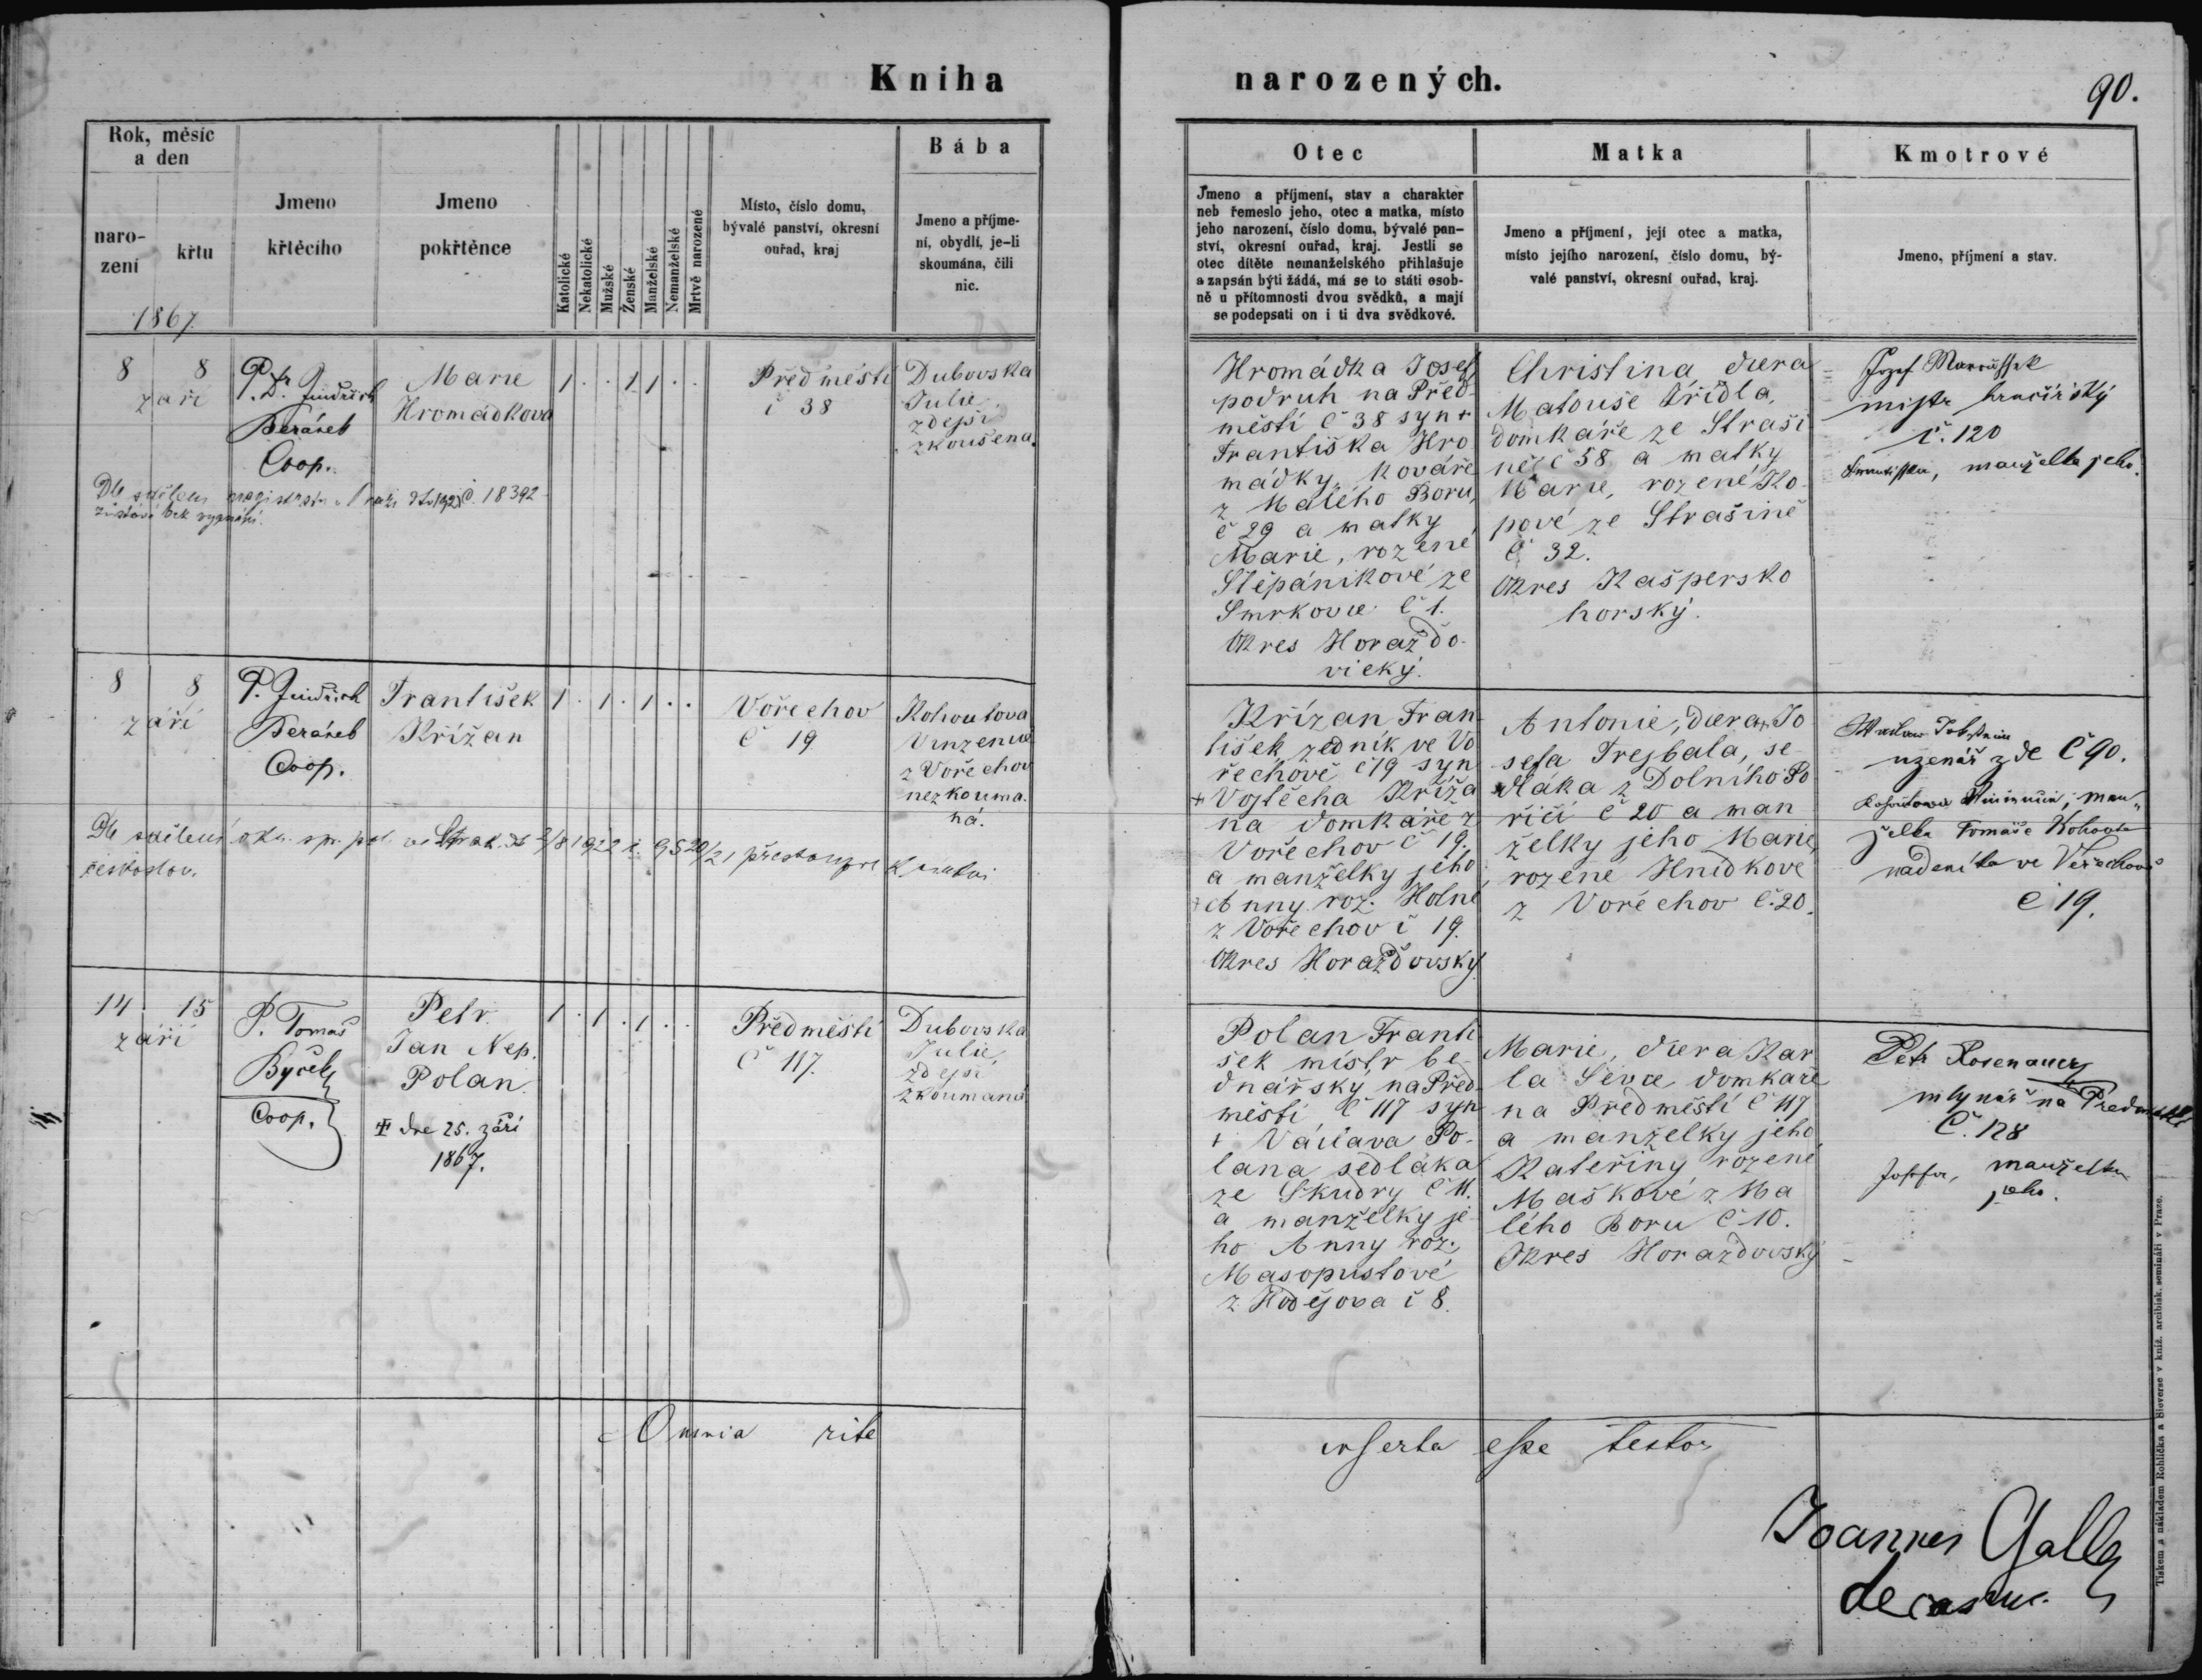 Kniha narozených.
90.
Rok, měsíc
a den
naro-
zení
křtu
1867
Jmeno
křtěcího
Jmeno
pokřtěnce
Katolické
Nekatolické
Mužské
Ženské
Manželské
Nemanželské
Mrtvě narozené
Místo, číslo domu,
bývalé panství, okresní
ouřad, kraj
Bába
Jmeno a příjme-
ní, obydlí, je-li
skoumána, čili
nic.
Otec
Jmeno a příjmení, stav a charakter
neb řemeslo jeho, otec a matka, místo
jeho narození, číslo domu, bývalé pan-
ství, okresní ouřad, kraj. Jestli se
otec dítěte nemanželského přihlašuje
a zapsán býti žádá, má se to státi osob-
ně u přítomnosti dvou svědků, a mají
se podepsati on i ti dva svědkové.
Matka
Jmeno a příjmení, její otec a matka,
místo jejího narození, číslo domu, bý-
valé panství, okresní ouřad, kraj.
Kmotrové
Jmeno, příjmení a stav.
8 8
září
P. Dr. Jindřich
Beránek
Coop.
Marie
Hromádkova
1 . . 1 1 . .
Předměstí
č 38
Dubovska
Julie,
zdejší
zkoušena.
Hromádka Josef
podruh na Před-
městí č 38 syn +
Františka Hro
mádky, kováře
z Malého Boru,
č 29 a matky
Marie, rozené
Štěpánikové ze
Smrkovce č 1.
Okres Horaždo-
vický.
Christina dcera
Matouše Třídla,
domkáře ze Straši
ně č 58 a matky
Marie, rozené Ko-
pové ze Strašině
č 32.
Okres Kašpersko
horský.
Jozef
mistr hrnčířský
č. 120
Františka, manželka jeho.
č. 18392
zůstává bez vyznání.
8 8
září
P. Jindřich
Beránek
Coop.
František
Křížan
1 . 1 . 1 . .
Vořechov
č 19
Kohoutova
Vinzencie
z Vořechov
nezkouma-
ná.
Křížan Fran-
tišek zedník ve Vo
řechově č 19 syn
+ Vojtěcha Kříža
na domkáře z
Vořechov č 19.
a manželky jeho
+ Anny roz. Holné
z Vořechov č 19.
Okres Horažďovský
Antonie, dcera + Jo
sefa Trejbala, se-
dláka z Dolního Po
říčí č 20 a man
želky jeho Marie,
rozené Hnidkove
z Vořechov č. 20.
uzenář zde č 90.
Kohoutova man-
želka Tomáše Kohouta
nádeníka ve Vořechově
č 19.
Dle sdělení okr. sp. pol. ve Strak. 3/8 1922 č. 9520/21 přestoupil k církvi
českoslov.
14 15
září
P. Tomáš
Býček
Coop.
Petr
Jan Nep.
Polan.
† dne 25. září
1867.
1 . 1 . 1 . .
Předměstí
č 117.
Dubovska
Julie,
zdejší
zkoumaná
Polan Franti
šek mistr be-
dnářský na Před-
městí č 117 syn
+ Václava Po-
lana sedláka
ze Škudry č 11.
a manželky je-
ho Anny roz.
Masopustové
z Hodějova č 8.
Marie, dcera Kar
la Ševce domkaře
na Předměstí č 117
a manželky jeho
Kateřiny rozené
Maškové z Ma
lého Boru č 10.
Okres Horaždovský
Petr Rosenauer
mlynář na Předměstí
č. 128
Josefa, manželka
jeho.
Omnia rite inserta esse testor
Joannes Galle
decanus.
Tiskem a nákladem Rohlíčka a Sieverse v kníž. arcibisk. semináři v Praze.